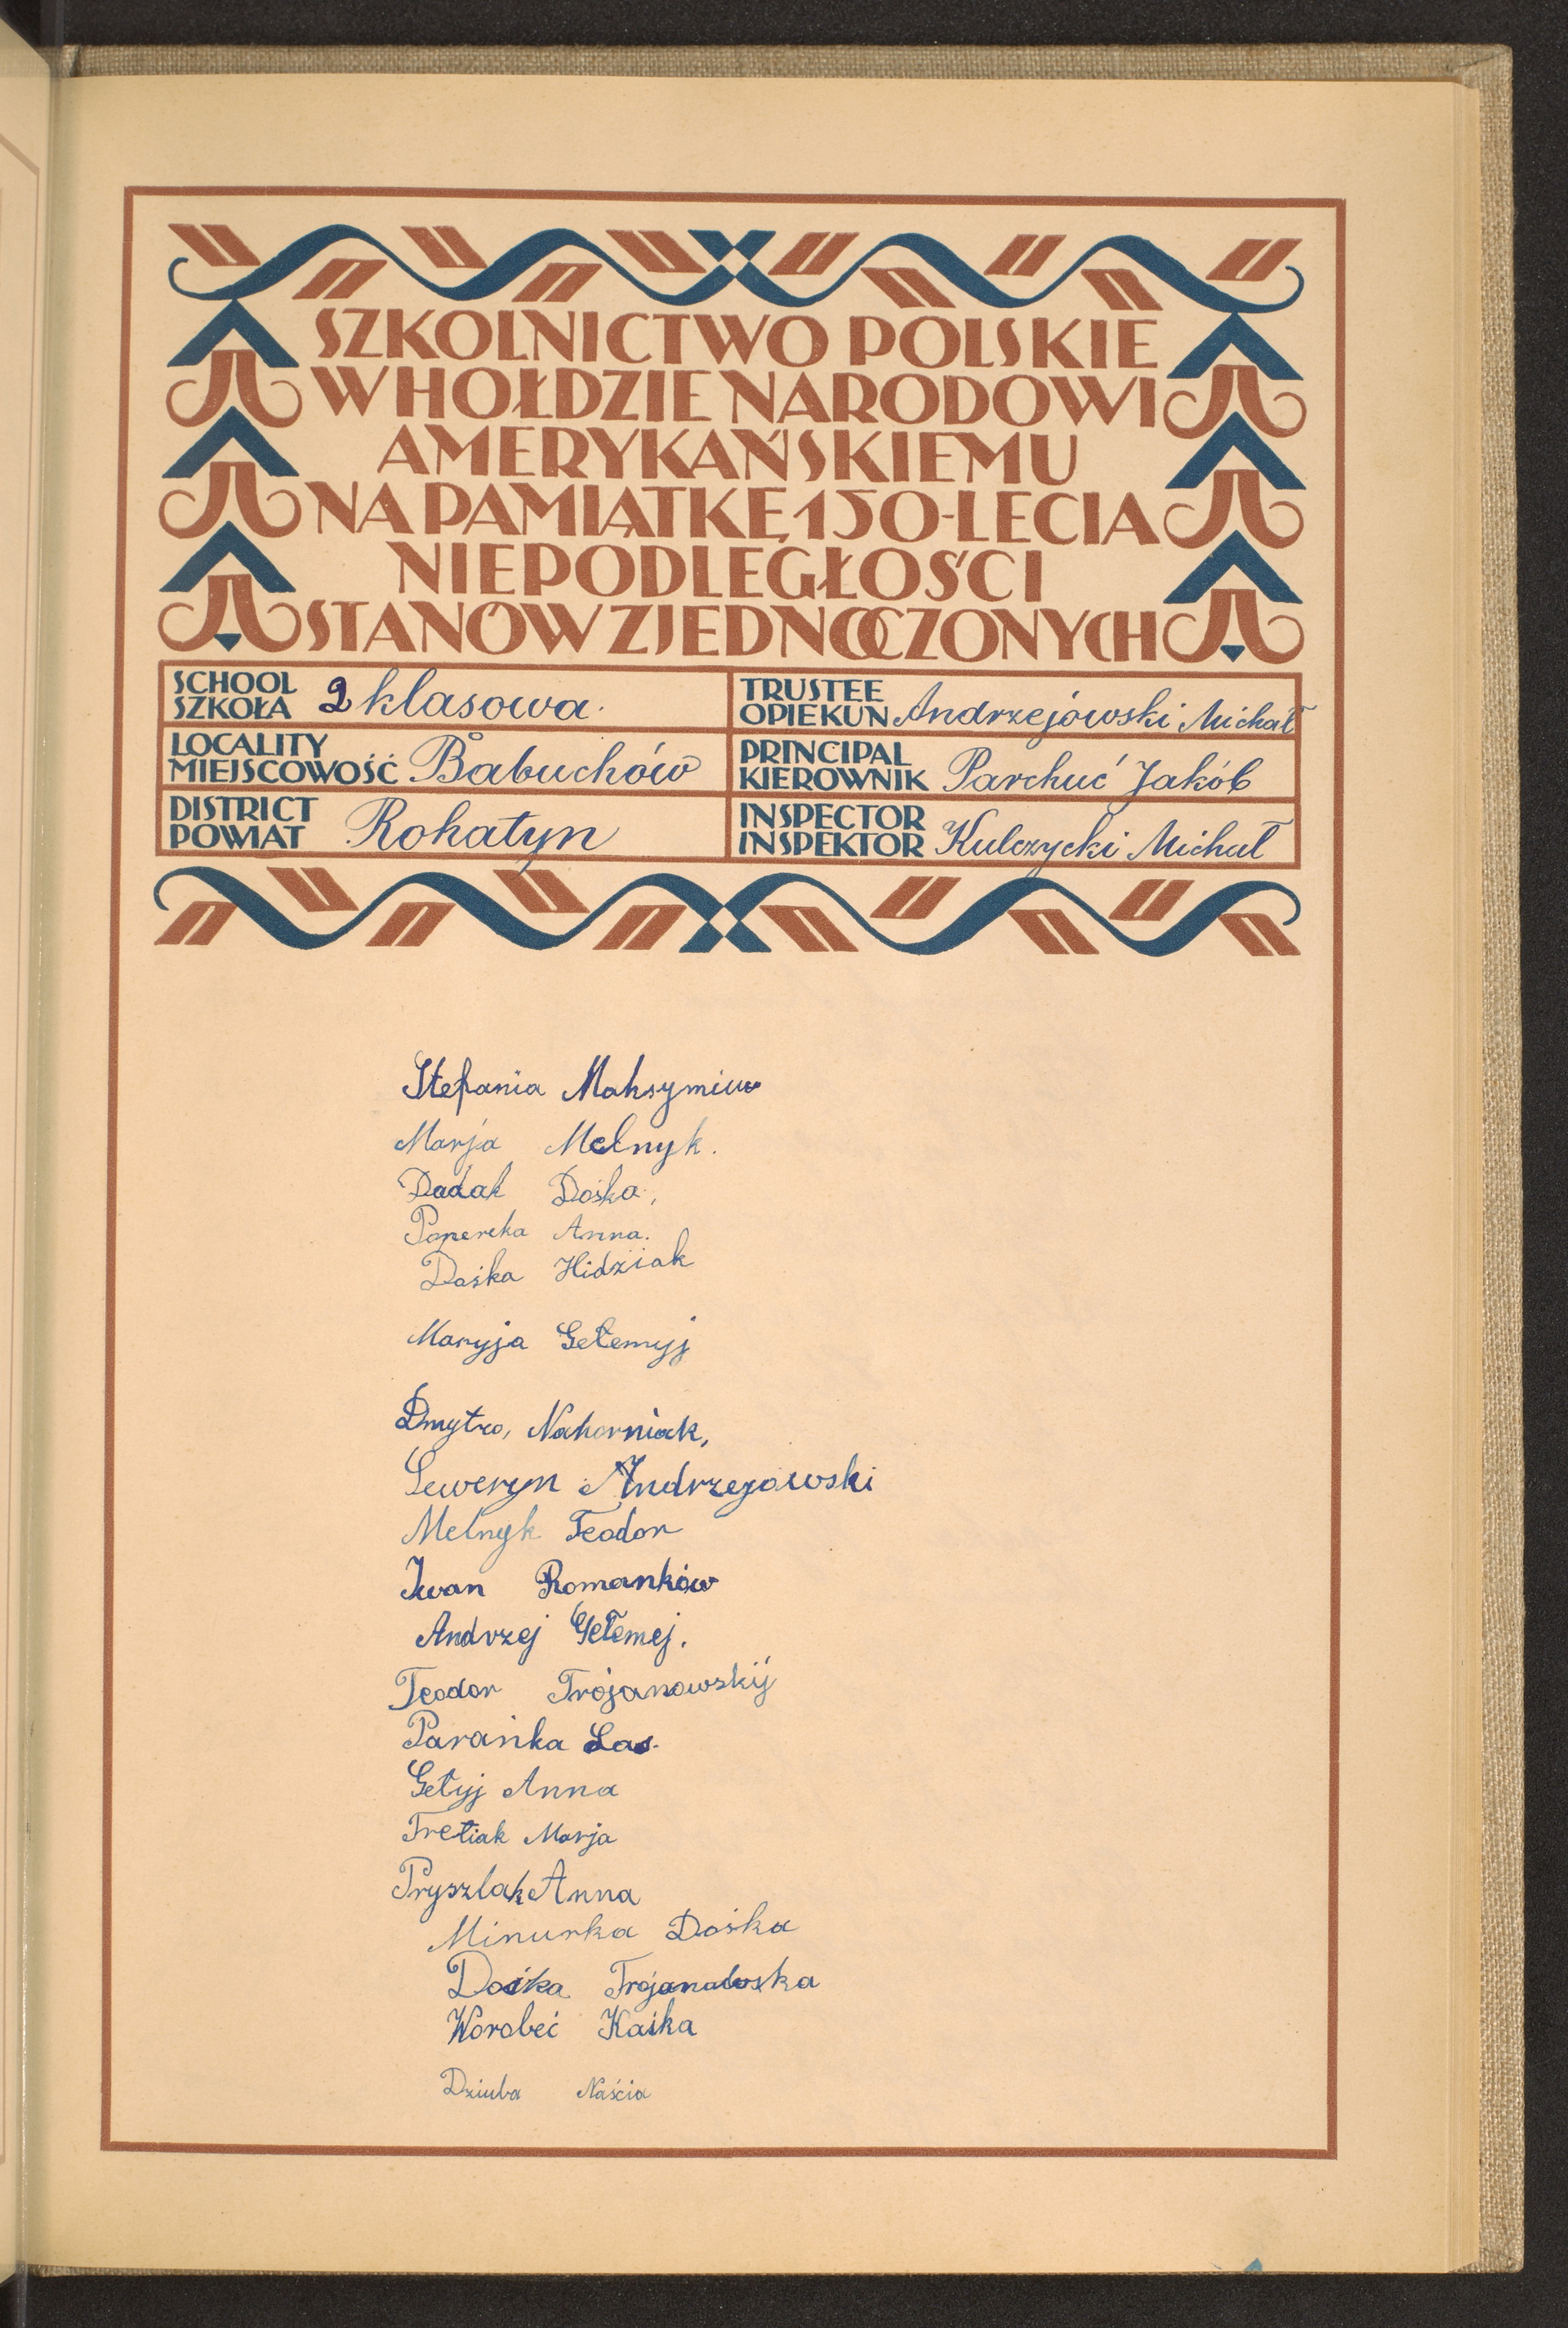 SZKOLNICTWO POLSKIE
W HOŁDZIE NARODOWI
AMERYKAŃSKIEMU
NA PAMIĄTKĘ 150-LECIA
NIEPODLEGŁOŚCI
STANÓW ZJEDNOCZONYCH
SCHOOL
SZKOŁA 2 klasowa
LOCALITY
MIEJSCOWOŚĆ Babuchów
DISTRICT
POWIAT Rohatyn
TRUSTEE
OPIEKUN Andrzejówski Michał
PRINCIPAL
KIEROWNIK Parchuć Jakób
INSPECTOR
INSPEKTOR Kulczycki Michał
Stefania Maksymiw
Marja Melnyk.
Dadak Dośka,
Papereka Anna.
Dośka Hidziak
Maryja Gełemyj
Dmytro, Nahorniak,
Seweryn Andrzejowski
Melnyk Teodor
Iwan Romanków
Andrzej Gełemej.
Teodor Trójanowskij
Parańka Las.
Getyj Anna
Tretiak Marja
Pryszlak Anna
Minurka Dośka
Dośka Trojanowska
Worobeć Kaśka
Dziuba Naścia